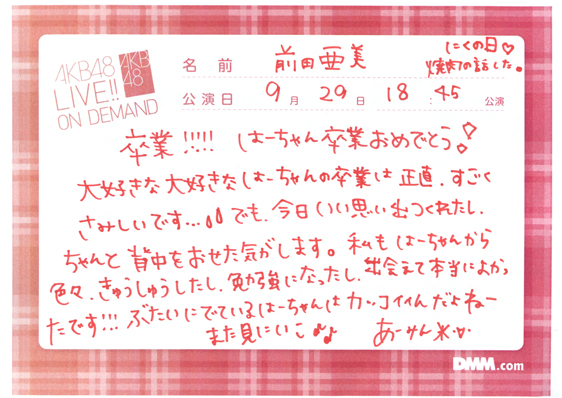 AKB48
LIVE!!
ON DEMAND
AKB
48
名前 前田亜美
にくの日♡
焼肉の話した。
公演日 9月29日 18:45 公演
卒業!!!!! はーちゃん卒業おめでとう!
大好きな大好きなはーちゃんの卒業は正直、すごく
さみしいです... でも、今日いい思い出つくれたし、
ちゃんと背中をおせた気がします。私もはーちゃんから
色々、きゅうしゅうしたし、勉強になったし、出会えて本当によかっ
たです!!! ぶたいにでているはーちゃんはカッコイイんだよねー
また見にいこ♪♪ あーみん
DMM.com